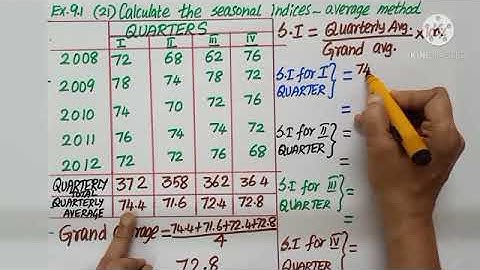 Ex.9.1 (21) Calculate the seasonal indices - average method
QUARTERS
I II III IV
2008 72 68 62 76
2009 78 74 78 72
2010 74 70 72 76
2011 76 74 74 72
2012 72 72 76 68
QUARTERLY TOTAL 372 358 362 364
QUARTERLY AVERAGE 74.4 71.6 72.4 72.8
Grand average = 74.4+71.6+72.4+72.8
4
72.8
S.I = Quarterly Avg. × 100
Grand avg.
S.I for I QUARTER } = 74
=
S.I for II QUARTER } =
=
S.I for III QUARTER } =
=
S.I for IV QUARTER } =